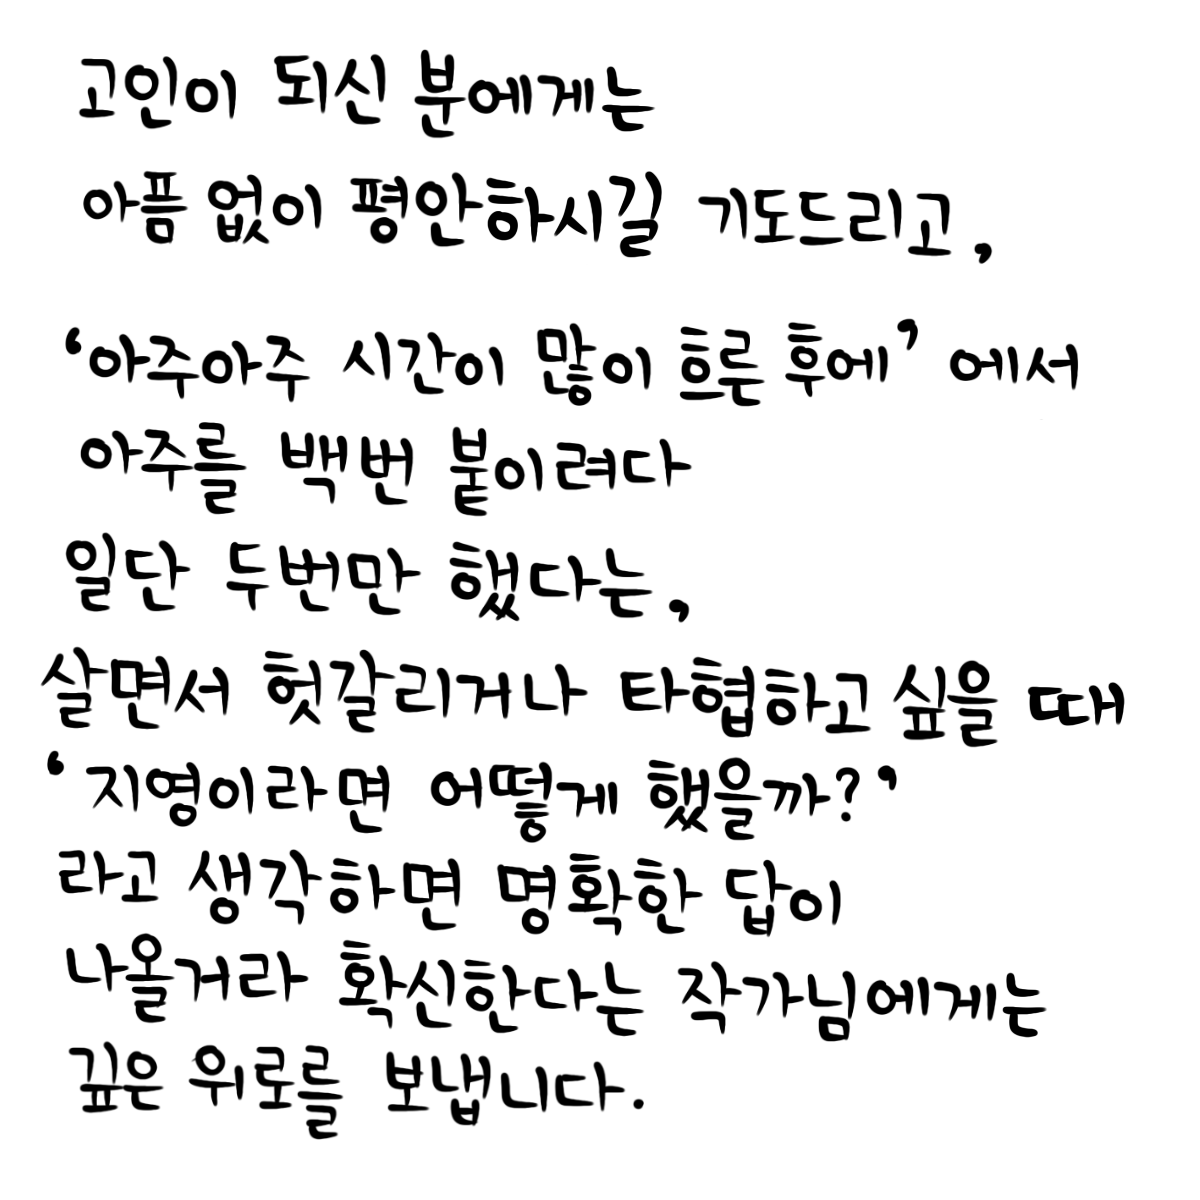 고인이 되신 분에게는
아픔 없이 평안하시길 기도드리고,
'아주아주 시간이 많이 흐른 후에' 에서
아주를 백번 붙이려다
일단 두번만 했다는,
살면서 헛갈리거나 타협하고 싶을 때
'지영이라면 어떻게 했을까?'
라고 생각하면 명확한 답이
나올거라 확신한다는 작가님에게는
깊은 위로를 보냅니다.